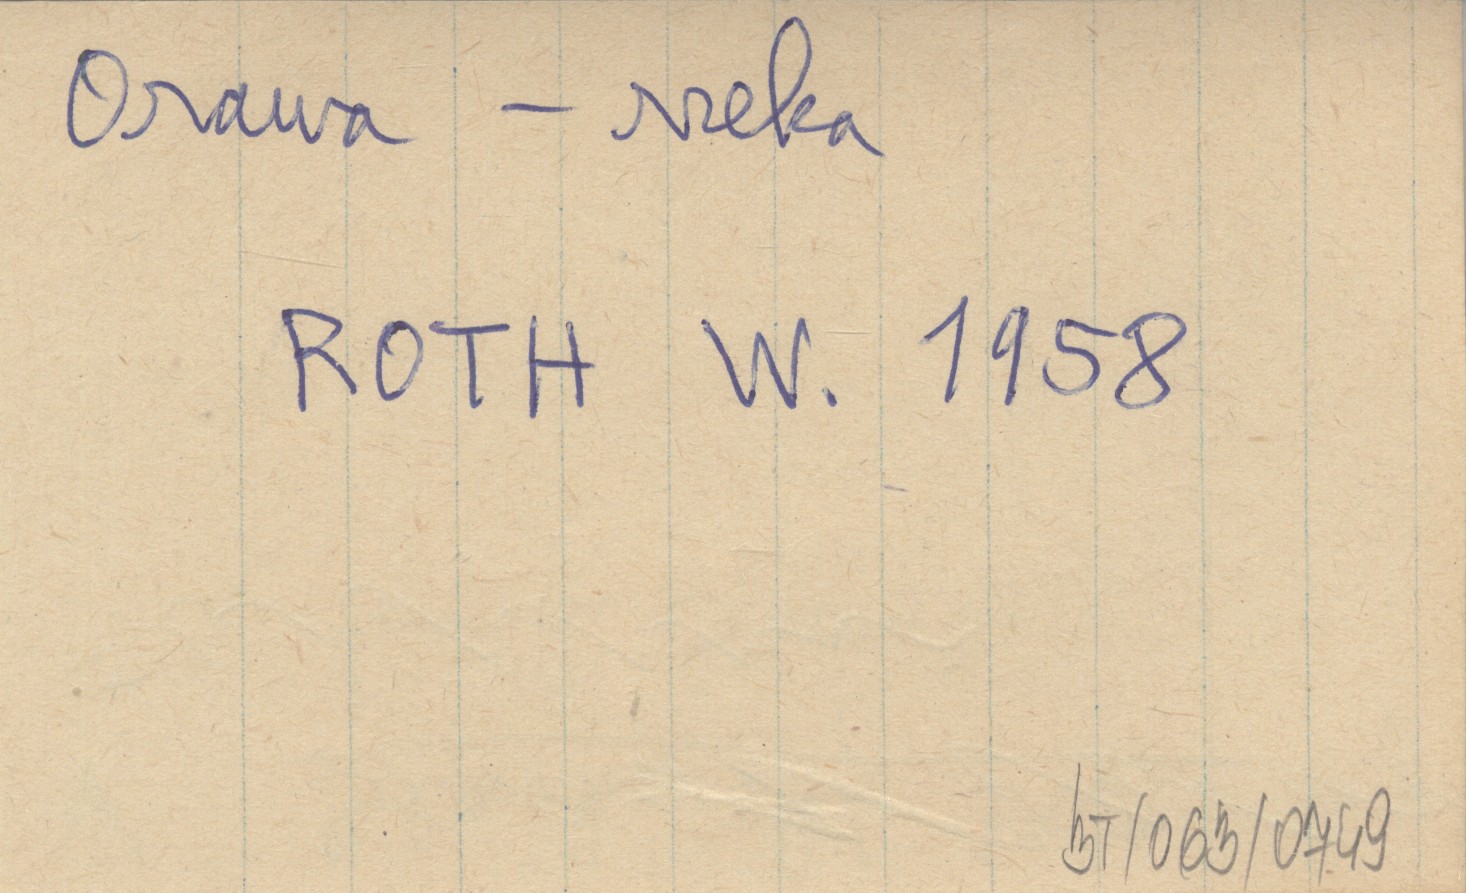 Orawa – rzeka
ROTH W. 1958
BT/063/0749